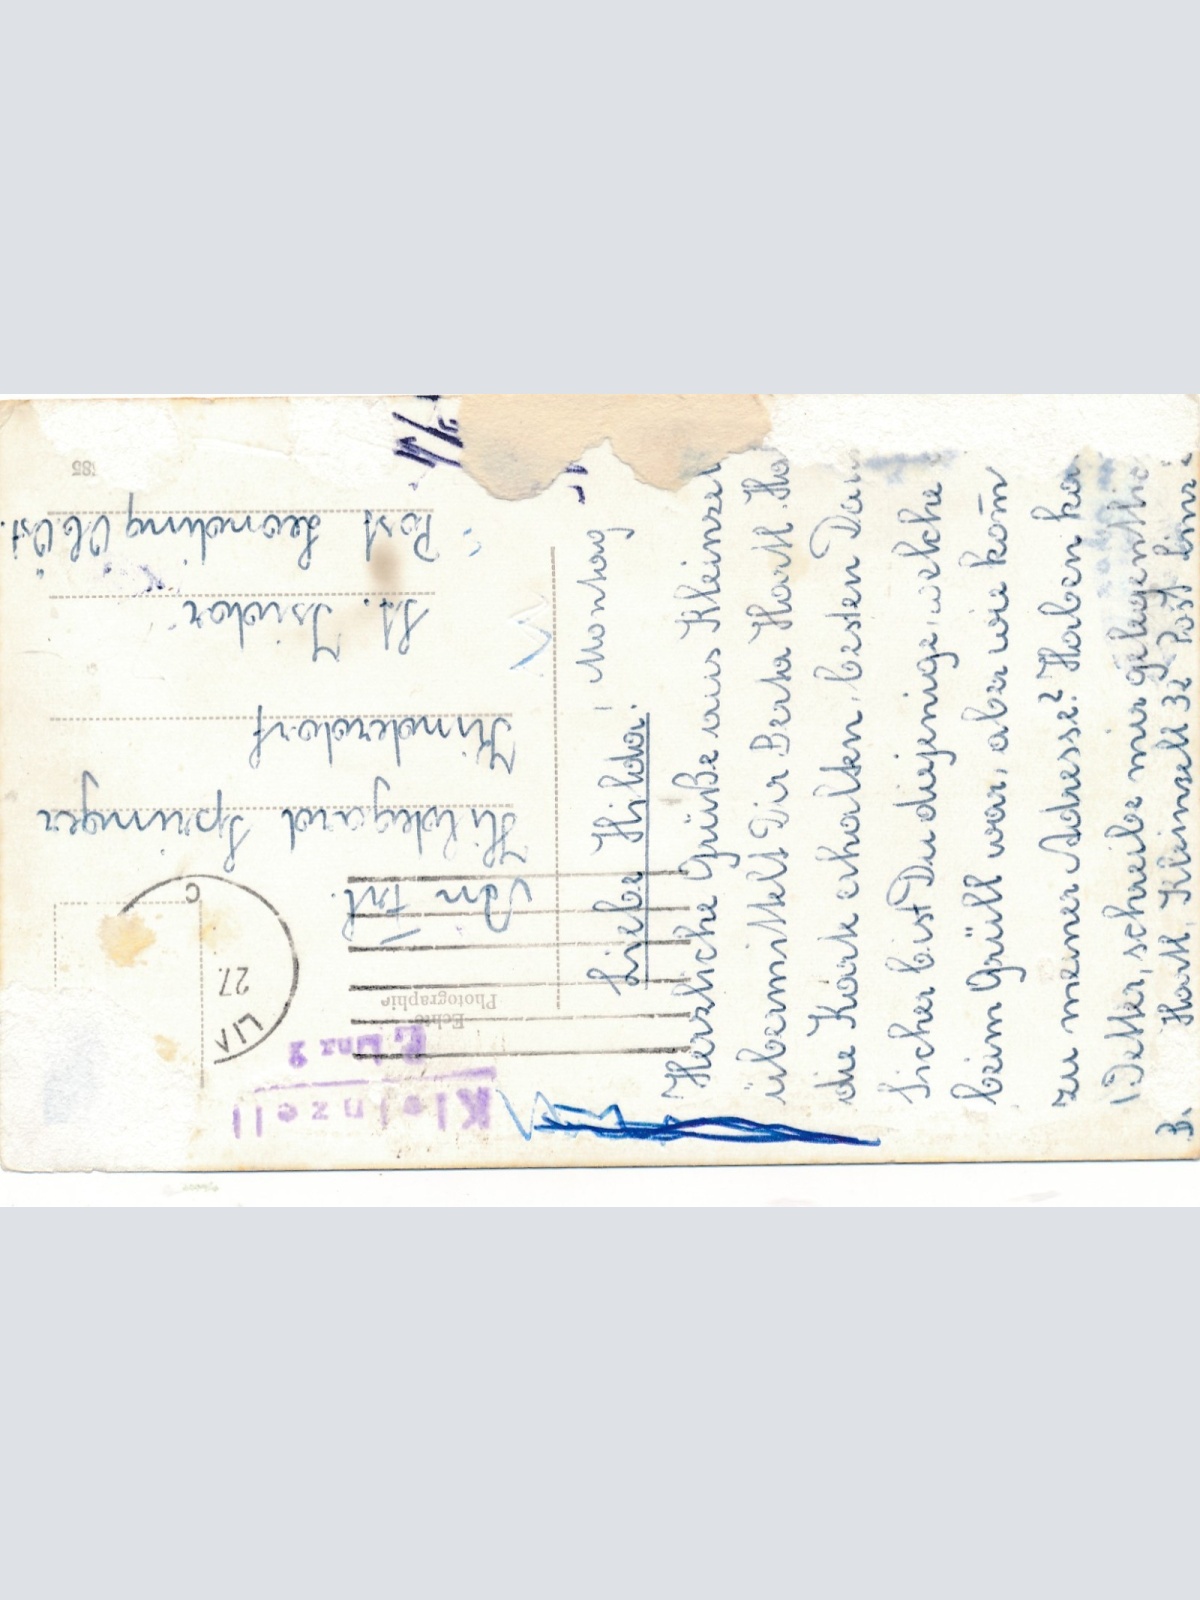 Montag
Liebe Hilda!
Herzliche Grüße aus Kleinzell
übermittelt Dir Berta Hartl. Ha
die Karte erhalten, besten Dan
Sicher bist Du diejenige, welche
beim Grüll war, aber wie kom̄
zu meiner Adresse? Haben ka
Wetter, schreibe mir gelegentlic
B. Hartl. Kleinzell 32 Post Linz 2
An Frl.
Hildegard Springer
Kinderdorf
St. Isidor
Post Leonding Ob. Öst.
Kleinzell
P. Linz 2
Echte
Photographie
27.
C